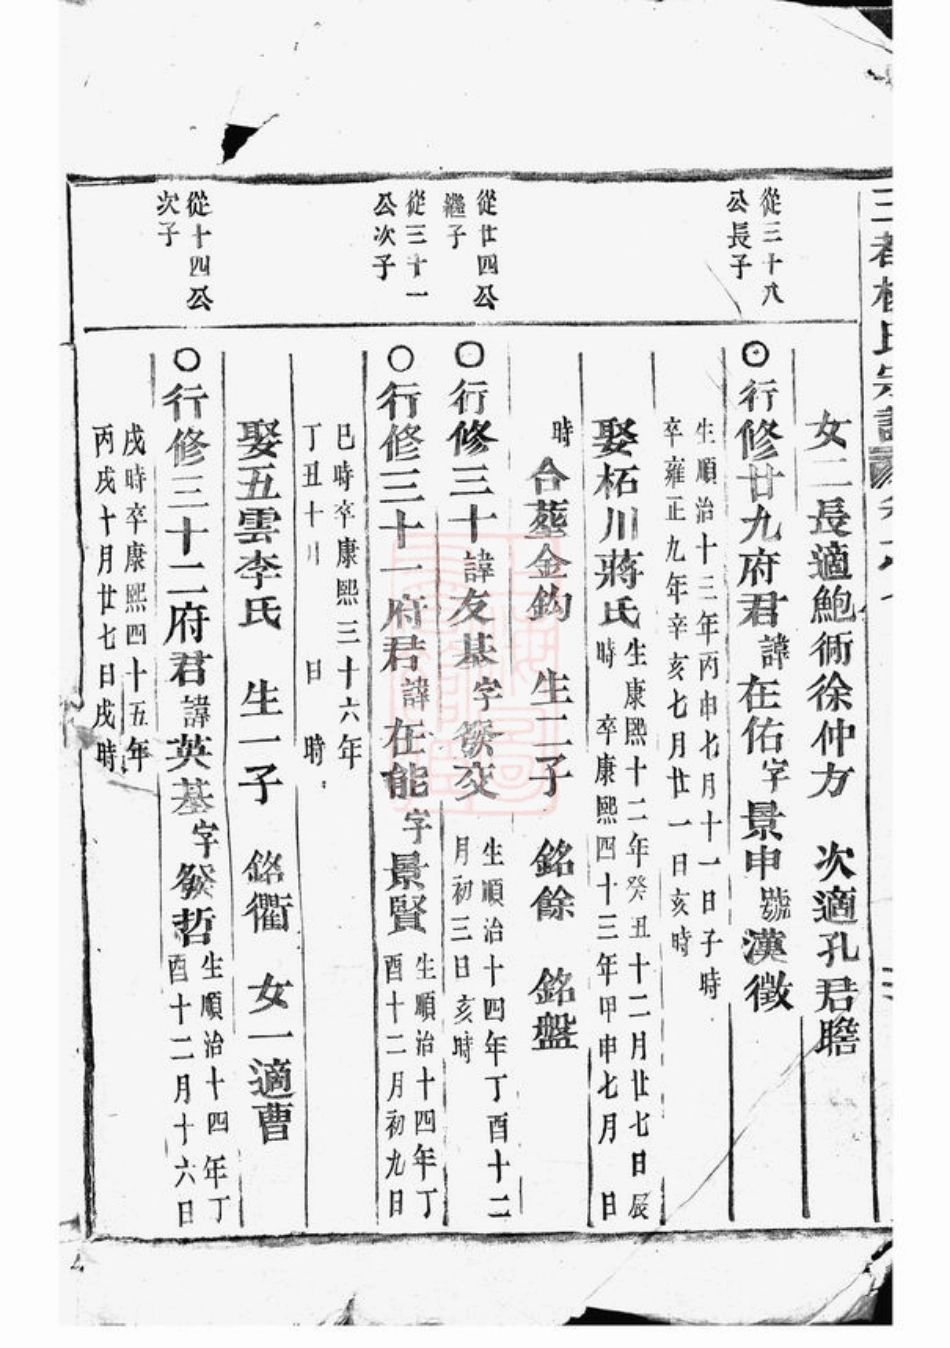 女二長適鮑衕徐仲方　次適孔君瞻
從三十八
公長子
○行修廿九府君諱在佑字景申號漢徵
生順治十三年丙申七月十一日子時
卒雍正九年辛亥七月廿一日亥時
娶柘川蔣氏
生康熙十二年癸丑十二月廿七日辰
時　卒康熙四十三年甲申七月　日
時　合葬金鈎　生二子　銘餘　銘盤
從廿四公
繼子
○行修三十諱友基字發交
生順治十四年丁酉十二
月初三日亥時
從三十一
公次子
○行修三十一府君諱在能字景賢
生順治十四年丁
酉十二月初九日
巳時卒康熙三十六年
丁丑十　日　時
娶五雲李氏　生一子　銘衢　女一適曹
從十四公
次子
○行修三十二府君諱英基字發哲
生順治十四年丁
酉十二月十六日
戌時卒康熙四十五年
丙戌十月廿七日戌時